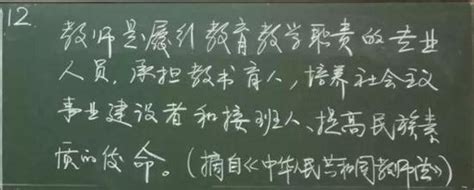 12
教师是履行教育教学职责的专业
人员，承担教书育人，培养社会主义
事业建设者和接班人、提高民族素
质的使命。（摘自《中华人民共和国教师法》）